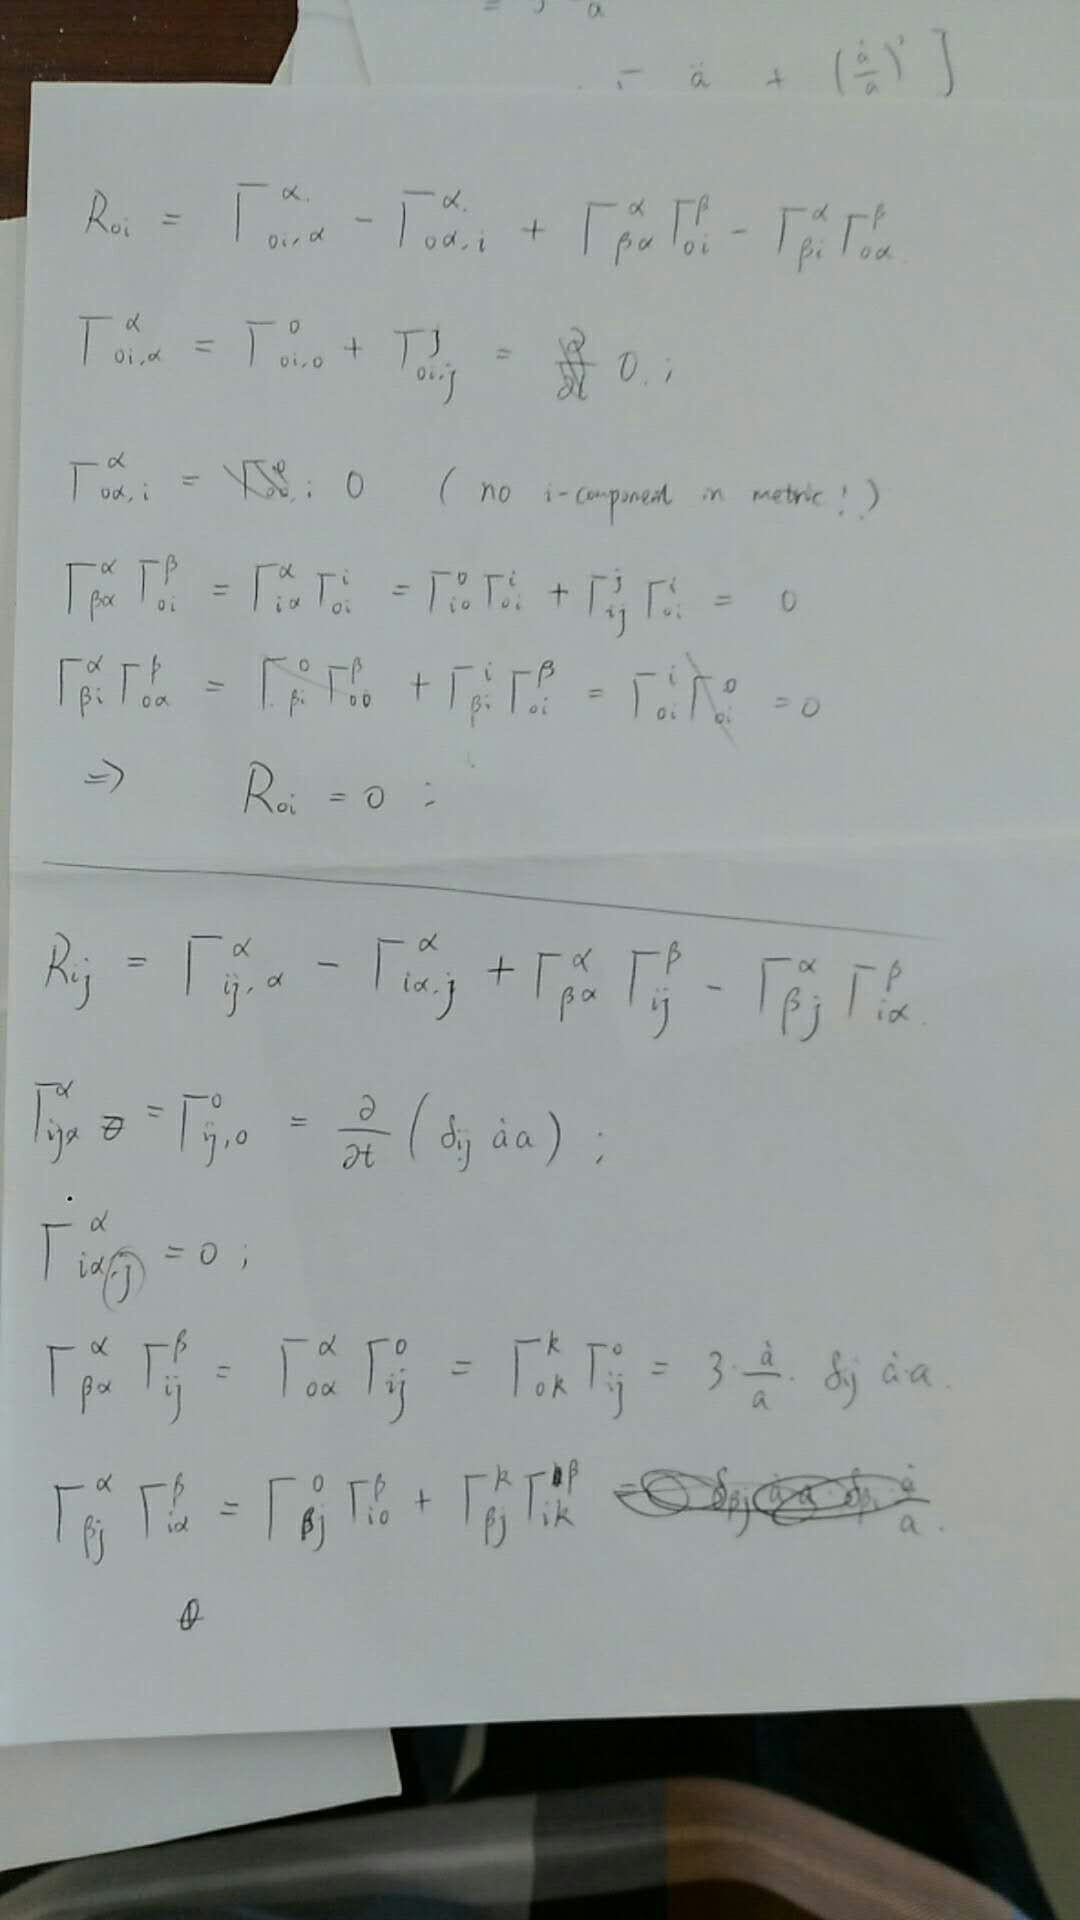 = ȧ
- ä + (ȧ/a)² ]
R₀ᵢ = Γ^α_{0i,α} - Γ^α_{0α,i} + Γ^α_{βα} Γ^β_{0i} - Γ^α_{βi} Γ^β_{0α}
Γ^α_{0i,α} = Γ^0_{0i,0} + Γ^j_{0i,j} = 0. ;
Γ^α_{0α,i} = 0 ( no i-component in metric! )
Γ^α_{βα} Γ^β_{0i} = Γ^α_{iα} Γ^i_{0i} = Γ^0_{i0} Γ^i_{0i} + Γ^j_{ij} Γ^i_{0i} = 0
Γ^α_{βi} Γ^β_{0α} = Γ^0_{βi} Γ^β_{00} + Γ^i_{βi} Γ^β_{0i} = Γ^i_{0i} Γ^0_{0i} = 0
⇒ R₀ᵢ = 0 :
R_{ij} = Γ^α_{ij,α} - Γ^α_{iα,j} + Γ^α_{βα} Γ^β_{ij} - Γ^α_{βj} Γ^β_{iα}.
Γ^α_{ijα} = Γ^0_{ij,0} = ∂/∂t ( δ_{ij} ȧa ) ;
Γ^α_{iα,j} = 0 ;
Γ^α_{βα} Γ^β_{ij} = Γ^α_{0α} Γ^0_{ij} = Γ^k_{0k} Γ^0_{ij} = 3· ȧ/a · δ_{ij} ȧ·a.
Γ^α_{βj} Γ^β_{iα} = Γ^0_{βj} Γ^β_{i0} + Γ^k_{βj} Γ^β_{ik}